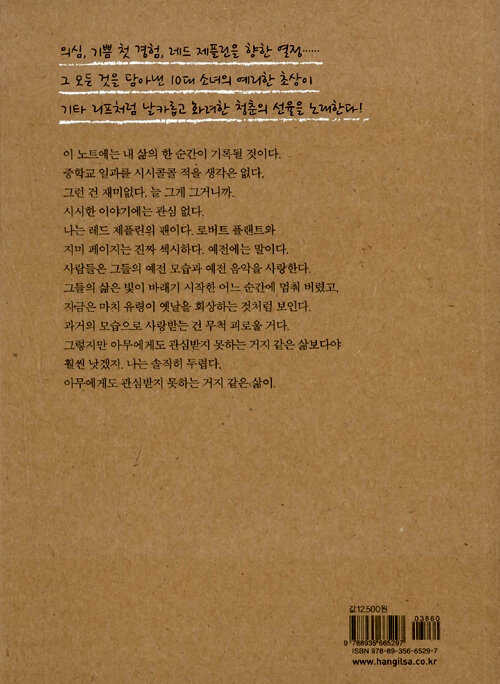 의심, 기쁨 첫 경험, 레드 제플린을 향한 열정……
그 모든 것을 담아낸 10대 소녀의 예리한 초상이
기타 리프처럼 날카롭고 화려한 청춘의 선율을 노래한다!
이 노트에는 내 삶의 한 순간이 기록될 것이다.
중학교 일과를 시시콜콜 적을 생각은 없다.
그런 건 재미없다. 늘 그게 그거니까.
시시한 이야기에는 관심 없다.
나는 레드 제플린의 팬이다. 로버트 플랜트와
지미 페이지는 진짜 섹시하다. 예전에는 말이다.
사람들은 그들의 예전 모습과 예전 음악을 사랑한다.
그들의 삶은 빛이 바래기 시작한 어느 순간에 멈춰 버렸고,
지금은 마치 유령이 옛날을 회상하는 것처럼 보인다.
과거의 모습으로 사랑받는 건 무척 괴로울 거다.
그렇지만 아무에게도 관심받지 못하는 거지 같은 삶보다야
훨씬 낫겠지. 나는 솔직히 두렵다.
아무에게도 관심받지 못하는 거지 같은 삶이.
값 12,500원
03860
9 788935 665297
ISBN 978-89-356-6529-7
www.hangilsa.co.kr